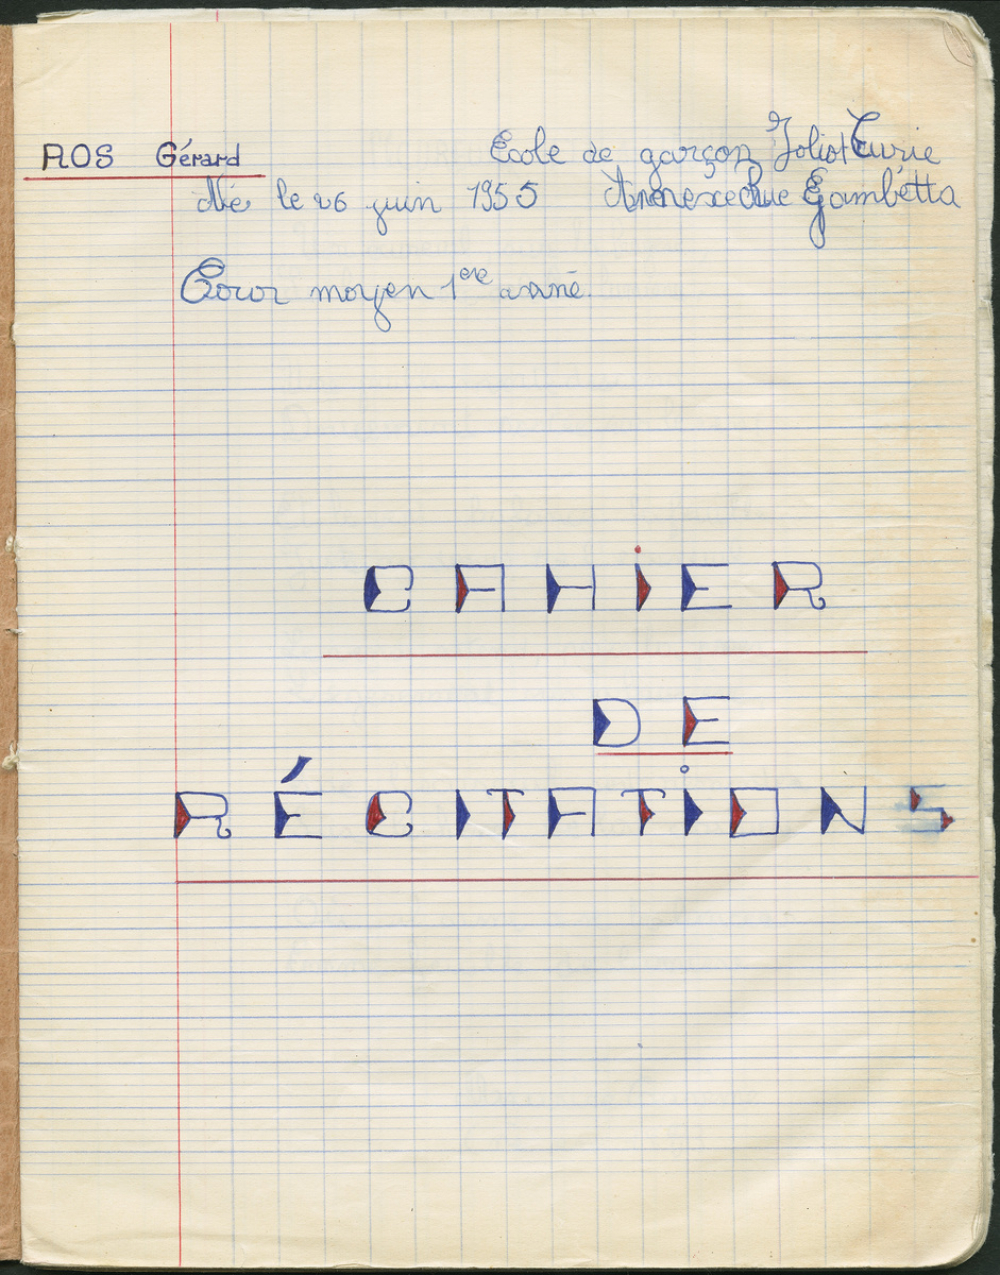 ROS Gérard
Ecole de garçon Joliot Curie
Né le 26 juin 1955
Annexe Rue Gambétta
Cour moyen 1ere anné.
CAHiER
DE
RÉCITATiONS